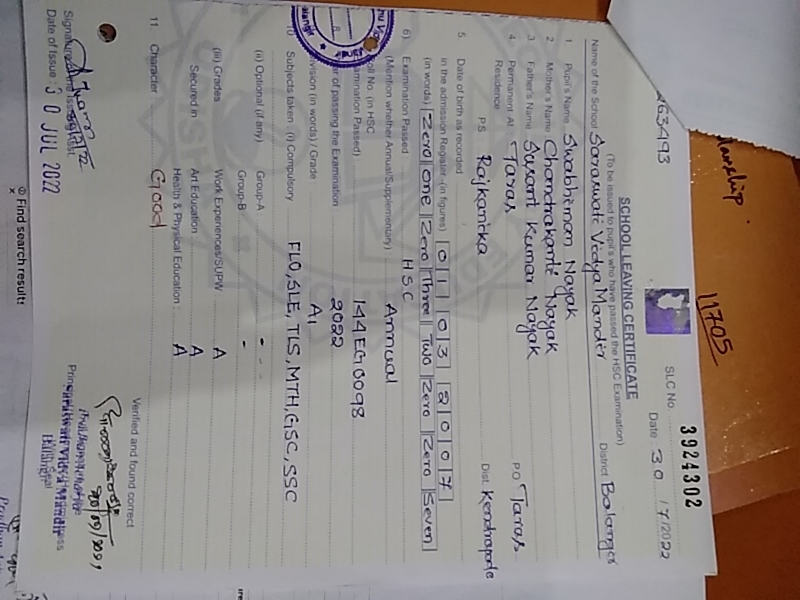 263493
SCHOOL LEAVING CERTIFICATE
(To be issued to pupil's who have passed the HSC Examination)
SLC No. 3924302
Date : 30/7/2022
Name of the School Saraswati Vidya Mandir District Balangir
1 Pupil's Name Swabhiman Nayak
2 Mother's Name Chandrakanti Nayak
3 Father's Name Susant Kumar Nayak
4. Permanent At : Taras P.O Taras
Residence P.S Rajkanika Dist. Kendrapada
5. Date of birth as recorded
in the admission Register (in figures) 0 1 0 3 2 0 0 7
(in words) Zero One Zero Three Two Zero Zero Seven
6) Examination Passed HSC
(Mention whether Annual/Supplementary) : Annual
Roll No. (in HSC
Examination Passed) 144EG0098
of passing the Examination 2022
Division (in words) / Grade A1
10 Subjects taken (i) Compulsory FLO, SLE, TLS, MTH, GSC, SSC
(ii) Optional (if any) Group-A -
Group-B -
(iii) Grades Work Experiences/SUPW A
Secured in Art Education A
Health & Physical Education : A
11 Character Good
Verified and found correct
Date of Issue : 30 JUL 2022
larship
11705
Find search results